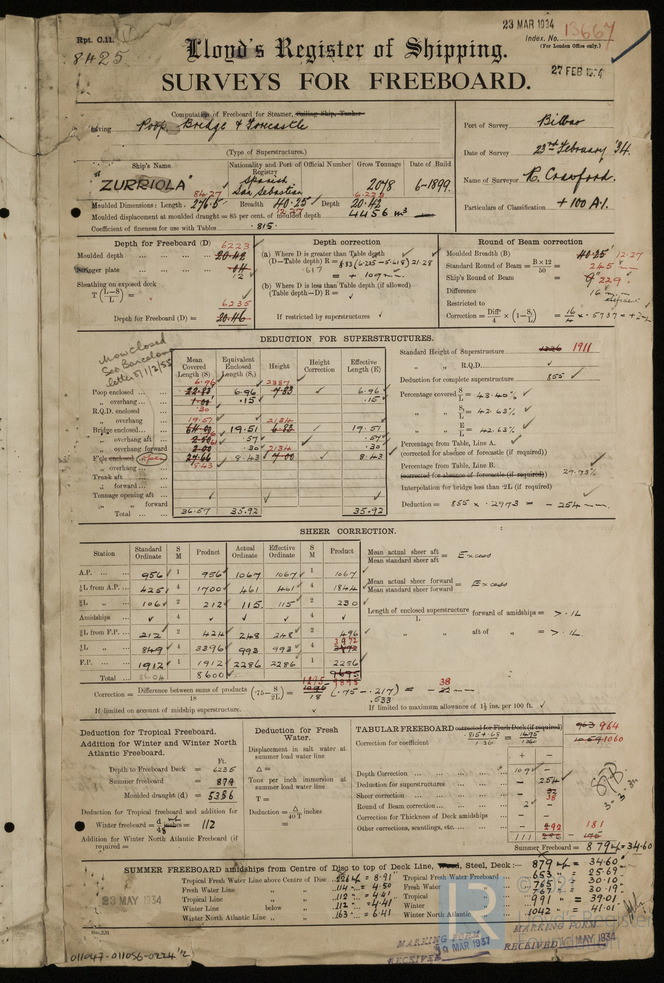 Rpt. C.11.
8425
23 MAR 1934
Index. No. 13667
(For London Office only.)
Lloyd's Register of Shipping.
27 FEB 1934
SURVEYS FOR FREEBOARD.
Computation of Freeboard for Steamer, Sailing Ship, Tanker
having Poop, Bridge & Forecastle
(Type of Superstructures.)
Port of Survey Bilbao
Date of Survey 23rd February '34.
Name of Surveyor R. Crawford.
Particulars of Classification +100 A.1.
Ship's Name
Nationality and Port of Registry
Official Number
Gross Tonnage
Date of Build
"ZURRIOLA"
Spanish
San Sebastian
2078
6-1899.
84.27
6.223
Moulded Dimensions: Length 276.5' Breadth 40.25 Depth 20.42
Moulded displacement at moulded draught = 85 per cent. of moulded depth 4456 m³
Coefficient of fineness for use with Tables .815
Depth for Freeboard (D)
6223
Moulded depth 20.42
Stringer plate .04
12
Sheathing on exposed deck
T (L-S/L) =
6235
Depth for Freeboard (D) = 20.46
Depth correction
(a) Where D is greater than Table depth
(D-Table depth) R = 8.83 (6.235-5.618) 21.28
.617 = + 109 m
(b) Where D is less than Table depth (if allowed)
(Table depth-D) R =
If restricted by superstructures
Round of Beam correction
Moulded Breadth (B) 40.25' 12.27
Standard Round of Beam = B × 12 / 50 = 245
Ship's Round of Beam = 9" 229
Difference 16
Restricted to
Correction = Diff / 4 × (1 - S/L) = 16/4 × .5737 = + 2
Now closed
See Barcelona
letter 8/1/2/55
DEDUCTION FOR SUPERSTRUCTURES.
Mean Covered Length (S)
Equivalent Enclosed Length (S₁)
Height
Height Correction
Effective Length (E)
Poop enclosed 6.96 22.83 6.96 2387 7.83 6.96
" overhang 1.00 .15 .15
R.Q.D. enclosed .30
" overhang 19.57 2134
Bridge enclosed 64.00 19.51 6.83 19.51
" overhang aft 2.50 .57 .57
" overhang forward 2.00 .30 2134 .30
F'cle enclosed 27.66 8.43 7.00 8.43
" overhang 8.43
Trunk aft
" forward
Tonnage opening aft
" " forward
Total 36.57 35.92 35.92
Standard Height of Superstructure 1911
" " R.Q.D.
Deduction for complete superstructure 855
Percentage covered S/L = 43.40%
" " S₁/L = 42.63%
" " E/L = 42.63%
Percentage from Table, Line A.
(corrected for absence of forecastle (if required)
Percentage from Table, Line B. 29.73%
(corrected for absence of forecastle (if required))
Interpolation for bridge less than ·2L (if required)
Deduction = 855 × .2973 = - 254
SHEER CORRECTION.
Station
Standard Ordinate
S M
Product
Actual Ordinate
Effective Ordinate
S M
Product
A.P. 956 1 956 1067 1067 1 1067
⅙L from A.P. 425 4 1700 461 461 4 1844
⅓L " 106 2 212 115 115 2 230
Amidships 4 4
⅓L from F.P. 212 2 424 248 248 2 496
⅙L " 849 4 3396 993 993 4 3972
F.P. 1912 1 1912 2286 2286 1 2286
Total 8600 9895
Mean actual sheer aft / Mean standard sheer aft = Excess
Mean actual sheer forward / Mean standard sheer forward = Excess
Length of enclosed superstructure / L forward of amidships = > .1L
" " aft of " = > .1L
Correction = Difference between sums of products / 18 (·75 - S/2L) = 1295 / 18 (.75 - .217) = - 38
.533
If limited on account of midship superstructure.
If limited to maximum allowance of 1½ ins. per 100 ft.
Deduction for Tropical Freeboard.
Addition for Winter and Winter North Atlantic Freeboard.
Ft.
Depth to Freeboard Deck = 6235
Summer freeboard = 879
Moulded draught (d) = 5356
Deduction for Tropical freeboard and addition for
Winter freeboard = d/48 = 112
Addition for Winter North Atlantic Freeboard (if required) =
Deduction for Fresh Water.
Displacement in salt water at summer load water line
Δ =
Tons per inch immersion at summer load water line
T =
Deduction = Δ / 40 T inches
=
TABULAR FREEBOARD corrected for Flush Deck (if required) 963 964
Correction for coefficient .815 + .68 / 1.36 = 1.495 / 1.36 1059 1060
+ -
Depth Correction 109 -
Deduction for superstructures - 254
Sheer correction - 38
Round of Beam correction 2 -
Correction for Thickness of Deck amidships - -
Other corrections, scantlings, etc. - -
111 292 181
Summer Freeboard = 879 = 34.60
SUMMER FREEBOARD amidships from Centre of Disc to top of Deck Line, Wood, Steel, Deck:— 879 = 34.60
Tropical Fresh Water Line above Centre of Disc 226 = 8.91"
Fresh Water Line " " 114 = 4.50
Tropical Line " " 112 = 4.41
Winter Line below " 112 = 4.41
Winter North Atlantic Line " " 163 = 6.41
Tropical Fresh Water Freeboard 653 = 25.69
Fresh Water " 765 = 30.10
Tropical " 767 = 30.19
Winter " 991 = 39.01
Winter North Atlantic " 1042 = 41.01
23 MAY 1934
LR
MARKING FORM
19 MAR 1937
RECEIVED
MARKING FORM
RECEIVED MAY 1934
011047-011056-0224 1/2